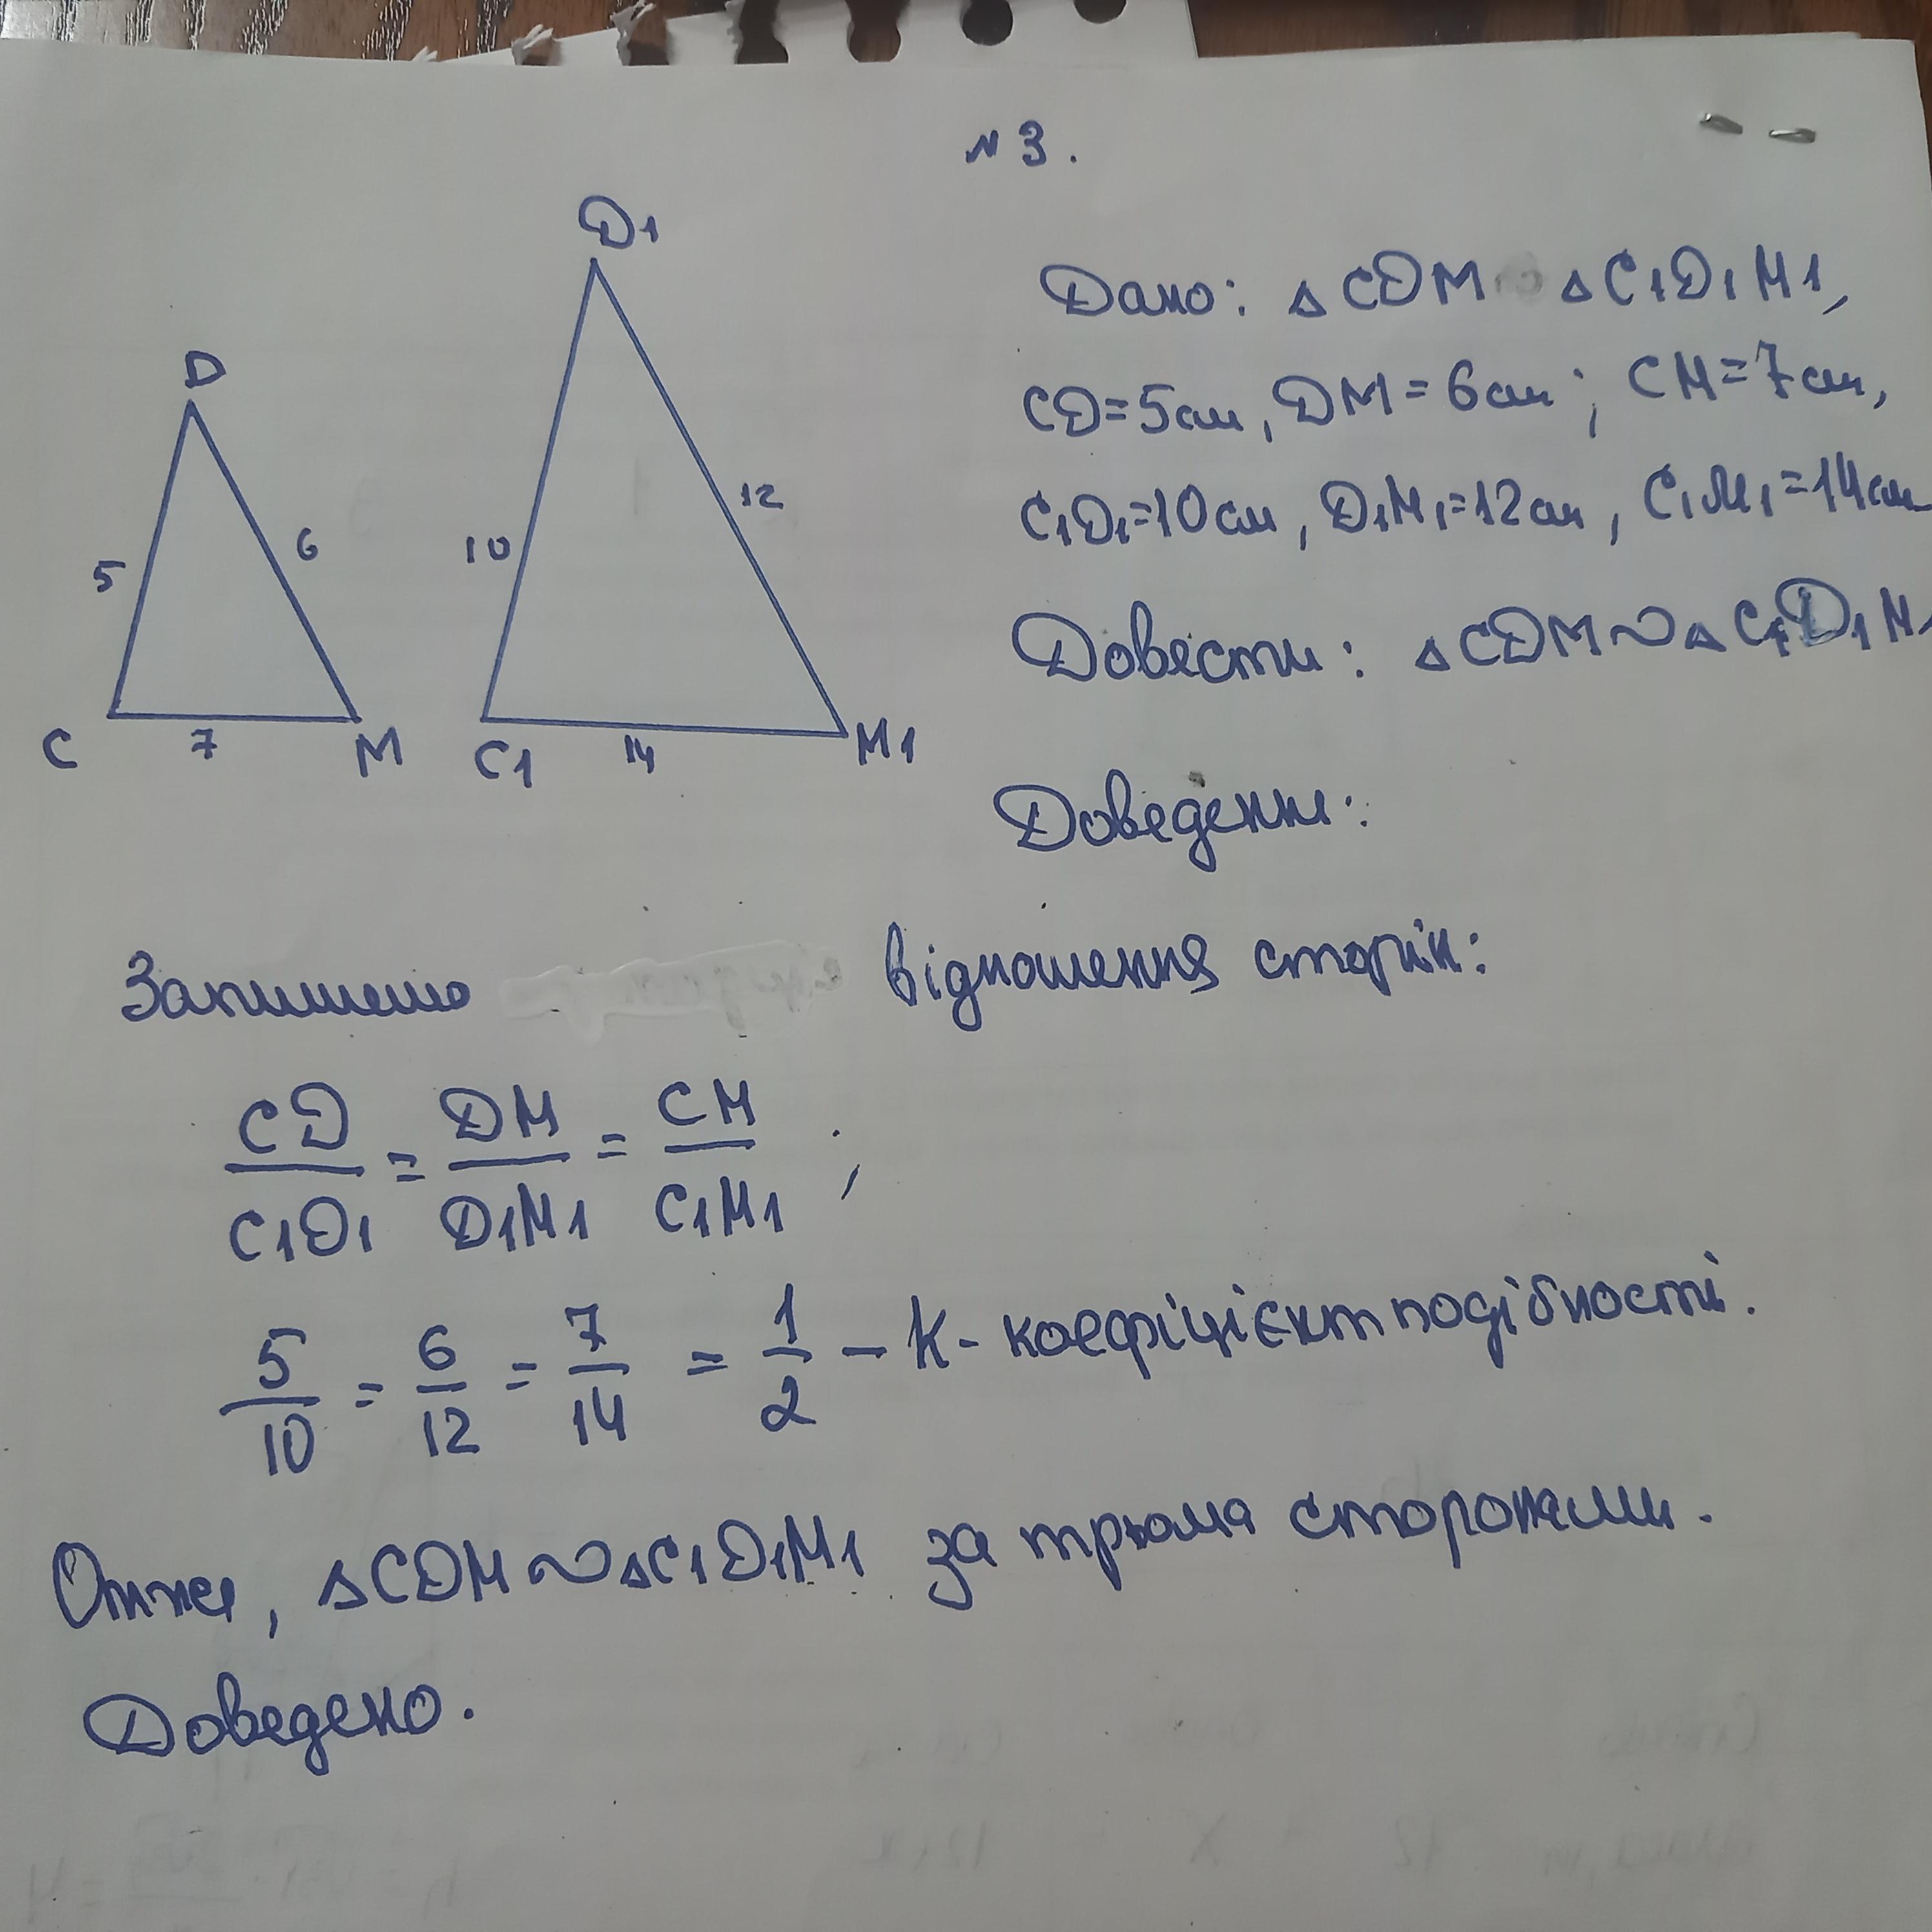 №3.
D1
Дано: △CDM △C1D1M1,
D
CD=5см, DM=6см; CM=7см,
12
C1D1=10см, D1M1=12см, C1M1=14см
10
6
5
Довести: △CDM∾△C1D1M1
C 7 M C1 14 M1
Доведення:
Запишемо відношення сторін:
CD/C1D1 = DM/D1M1 = CM/C1M1 ;
5/10 = 6/12 = 7/14 = 1/2 – K - коефіцієнт подібності.
Отже, △CDM∾△C1D1M1 за трьома сторонами.
Доведено.